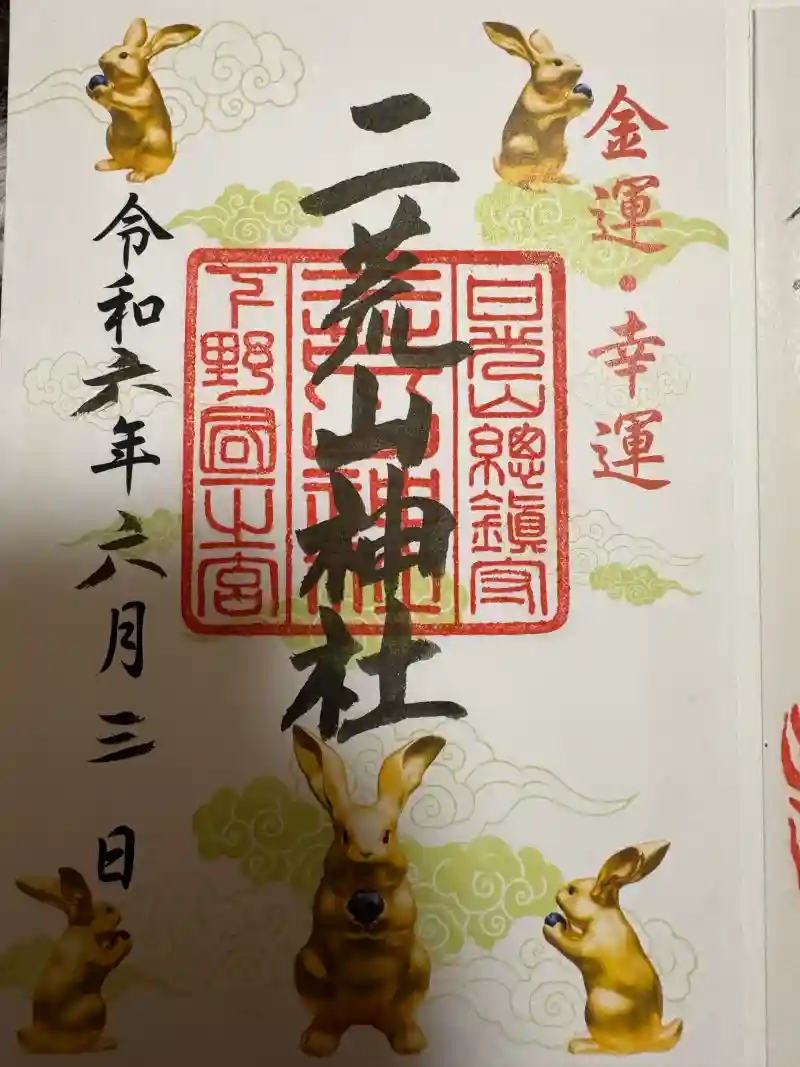 金運・幸運
二荒山神社
日光山總鎭守
二荒山神社
下野國一之宮
令和六年六月三日